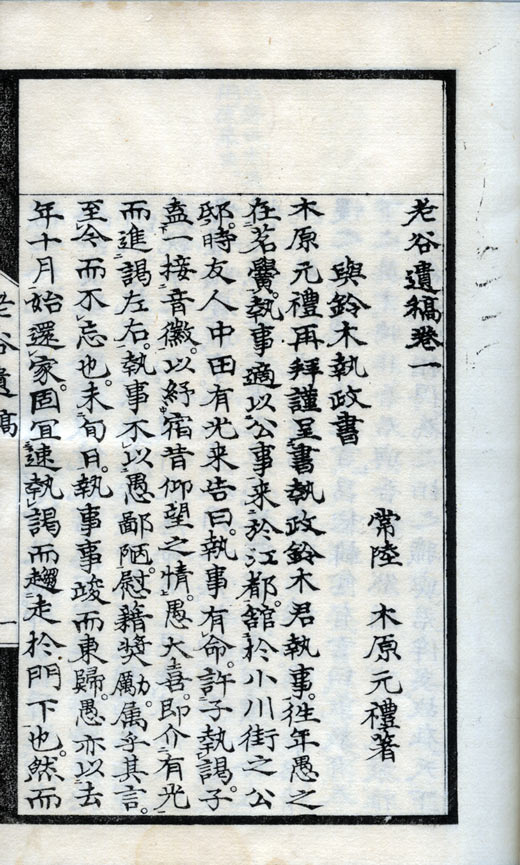 老谷遺稿卷一
常陸 木原元禮著
與鈴木執政書
木原元禮再拜謹呈書執政鈴木君執事。徃年愚之
在茗黌。執事適以公事来於江都。舘於小川街之公
邸。時友人中田有光来告曰。執事有命。許子執謁。子
盍一接音徽。以紓宿昔仰望之情。愚大喜。即介有光
而進謁左右。執事不以愚鄙陋。慰藉奬勵。属乎其言。
至今而不忘也。未旬日。執事事竣而東歸。愚亦以去
年十月始還家。固宜速執謁而趨走於門下也。然而
老谷遺稿
一